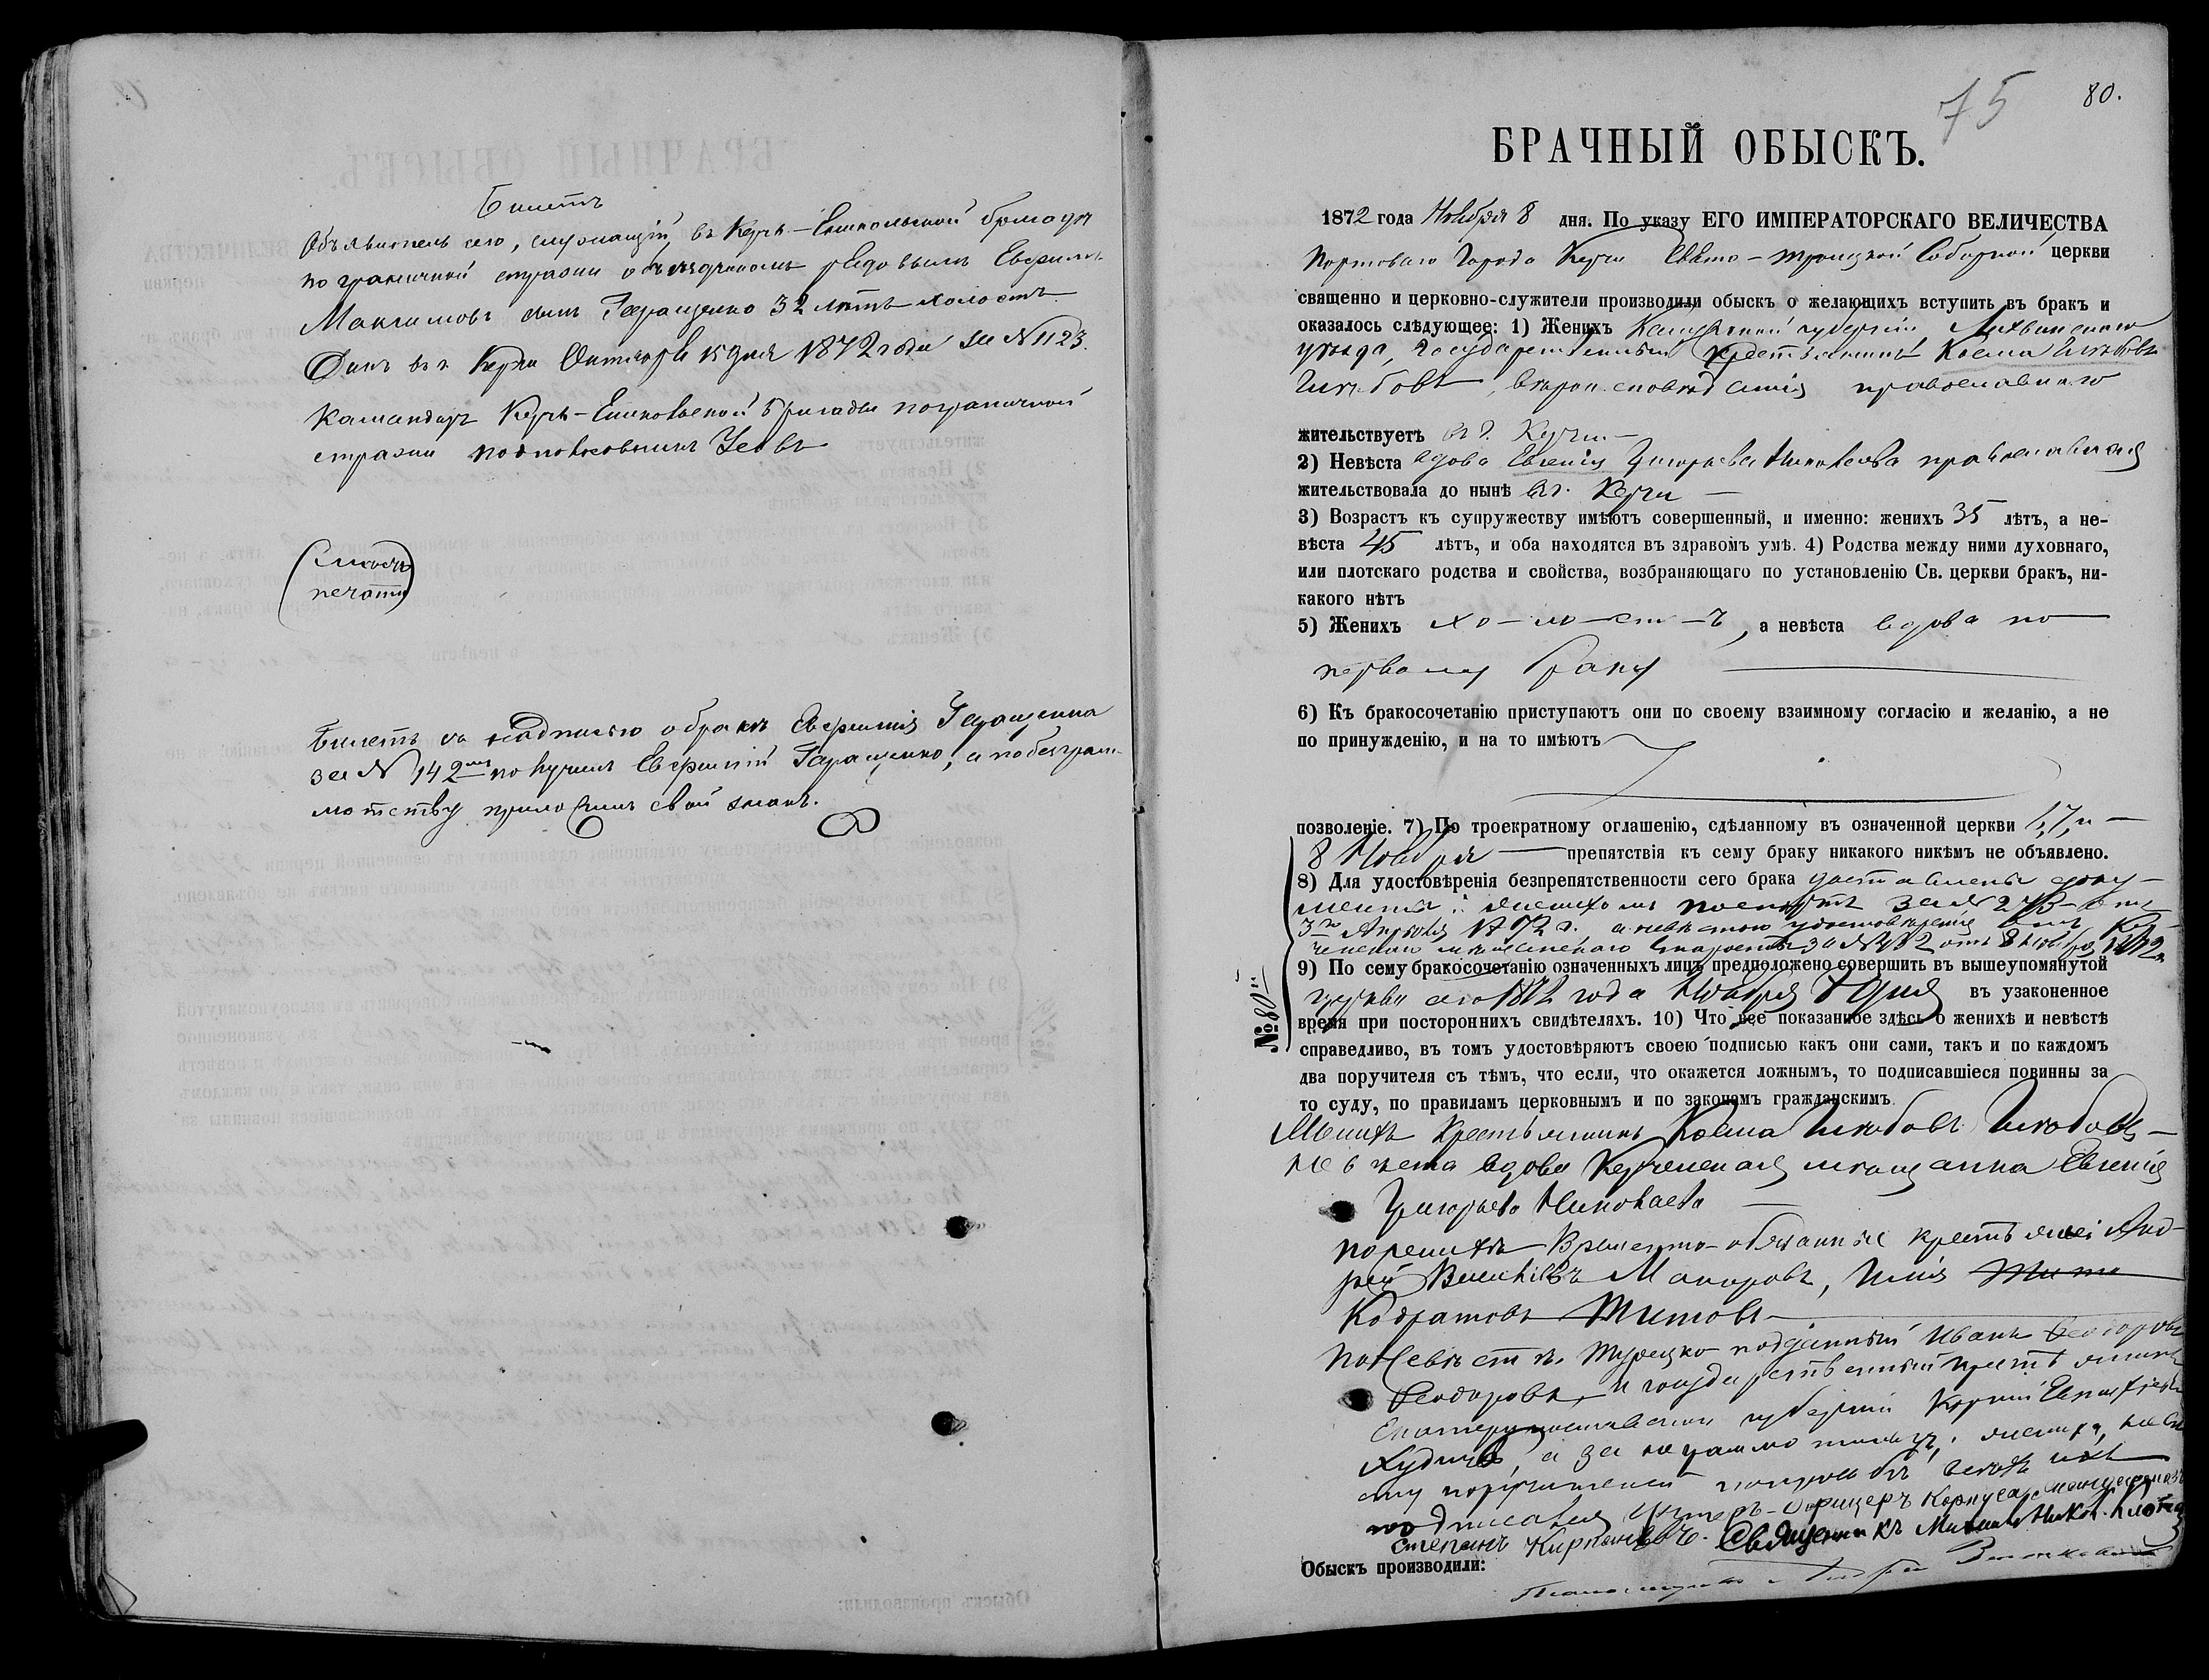 Билетъ
Объявитель сего, служащій въ Керчь-Еникольской бригадѣ
пограничной стражи объѣздчикомъ рядовымъ Евфимій
Максимовъ сынъ Геращенко 32 лѣтъ холостъ.
Данъ въ г. Керчи Октября 15 дня 1872 года за № 1123.
Командиръ Керчь-Еникольской бригады пограничной
стражи подполковникъ
печати
Билетъ съ надписью о бракѣ Евфимія Геращенка
за № 142 получилъ Евфимій Геращенко, а по безграмотству приложилъ свой знакъ.
75
80.
БРАЧНЫЙ ОБЫСКЪ.
1872 года Ноября 8 дня. По указу ЕГО ИМПЕРАТОРСКАГО ВЕЛИЧЕСТВА
Портоваго Города Керчи Свято-Троицкой Соборной церкви
священно и церковно-служители производили обыскъ о желающихъ вступить въ бракъ и
оказалось слѣдующее: 1) Женихъ Калужской губерніи, Лихвинскаго
уѣзда, государственный крестьянинъ Косма Іаковлевъ
Іаковлевъ, вѣроисповѣданія православнаго
жительствуетъ въ г. Керчи —
2) Невѣста вдова Евгенія Григорьева Николаева православная
жительствовала до нынѣ въ г. Керчи —
3) Возрастъ къ супружеству имѣютъ совершенный, и именно: женихъ 35 лѣтъ, а не-
вѣста 45 лѣтъ, и оба находятся въ здравомъ умѣ. 4) Родства между ними духовнаго,
или плотскаго родства и свойства, возбраняющаго по установленію Св. церкви бракъ, ни-
какого нѣтъ
5) Женихъ хо-ло-ст-ъ, а невѣста вдова по
первому браку
6) Къ бракосочетанію приступаютъ они по своему взаимному согласію и желанію, а не
по принужденію, и на то имѣютъ
позволеніе. 7) По троекратному оглашенію, сдѣланному въ означенной церкви 1, 7, и —
8 Ноября — препятствія къ сему браку никакого никѣмъ не объявлено.
8) Для удостовѣренія безпрепятственности сего брака доставлены доку-
менты: женихомъ паспортъ за № 243 отъ
3го Апрѣля 1872 г., а невѣстою удостовѣреніе Кер-
ченскаго мѣщанскаго старосты за № 482 отъ 8 Ноября 1872.
9) По сему бракосочетанію означенныхъ лицъ предположено совершить въ вышеупомянутой
церкви сего 1872 года Ноября 8 дня въ узаконенное
время при постороннихъ свидѣтеляхъ. 10) Что все показанное здѣсь о женихѣ и невѣстѣ
справедливо, въ томъ удостовѣряютъ своею подписью какъ они сами, такъ и по каждомъ
два поручителя съ тѣмъ, что если, что окажется ложнымъ, то подписавшіеся повинны за
то суду, по правиламъ церковнымъ и по законамъ гражданскимъ
№ 80й
Женихъ крестьянинъ Косма Іаковлевъ Іаковлевъ —
Невѣста вдова Керченская мѣщанка Евгенія
Григорьева Николаева —
по женихѣ Временно-обязанные крестьяне Анд-
рей Васильевъ Макаровъ, Илія
Кодратовъ Титовъ —
по Невѣстѣ. Турецко подданный Иванъ Ѳеодоровъ
Ѳеодоровъ, и государственный крестьянинъ
Екатеринославской губерніи
а за неграмотныхъ: жениха, невѣ-
сту поручителей по просьбѣ всѣхъ ихъ
подписался Унтеръ-Офицеръ Корпуса жандармовъ
Степанъ Священникъ Михаилъ Никол.
Обыскъ производили: